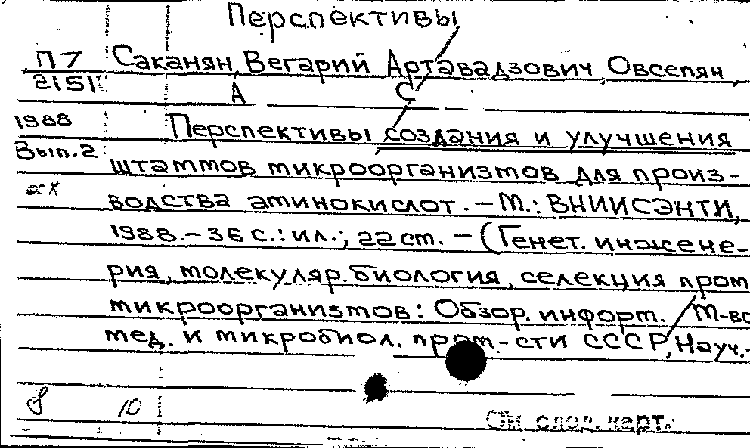 Перспективы
П7 Саканян, Вегарий Артавадзович, Овсепян,
2151 А С
1988 Перспективы создания и улучшения
Вып.2 штаммов микроорганизмов для произ-
водства аминокислот. – М.: ВНИИСЭНТИ,
1988. – 36 с.: ил.; 22 см. – (Генет. инжене-
рия, молекуляр. биология, селекция пром
микроорганизмов: Обзор. информ. / М-во
мед. и микробиол. пром-сти СССР, Науч.-
8 10
См. след. карт.